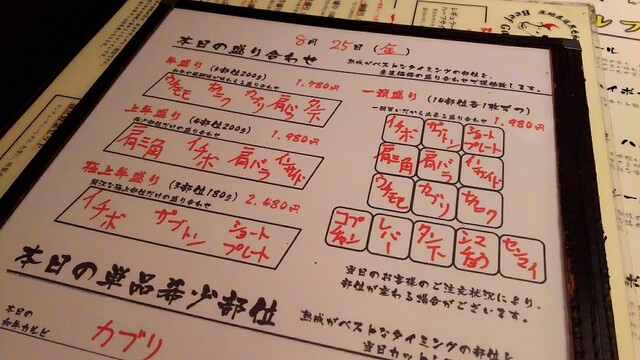 8月 25日 (金)
本日の盛り合わせ
熟成がベストなタイミングの部位を、
産直価格の盛り合わせで提供致します。
牛盛り (5部位200g) 1,780円
ウチモモ
カブリ
肩バラ
タン下
上牛盛り (4部位200g) 1,980円
肩三角
イチボ
肩バラ
インサイド
極上牛盛り (3部位180g) 2,480円
贅沢な極上部位だけの盛り合わせ
イチボ
ザブトン
ショートプレート
一頭盛り (14部位各1枚ずつ)
1,980円
イチボ
ザブトン
ショートプレート
肩三角
肩バラ
インサイド
ウチモモ
カブリ
コプチャン
レバー
タン下
シマチョウ
センマイ
当日のお客様のご注文状況により、
部位が変わる場合がございます。
本日の単品希少部位
熟成がベストなタイミングの部位を
当日カット
本日の
和牛カルビ
カブリ
Beef